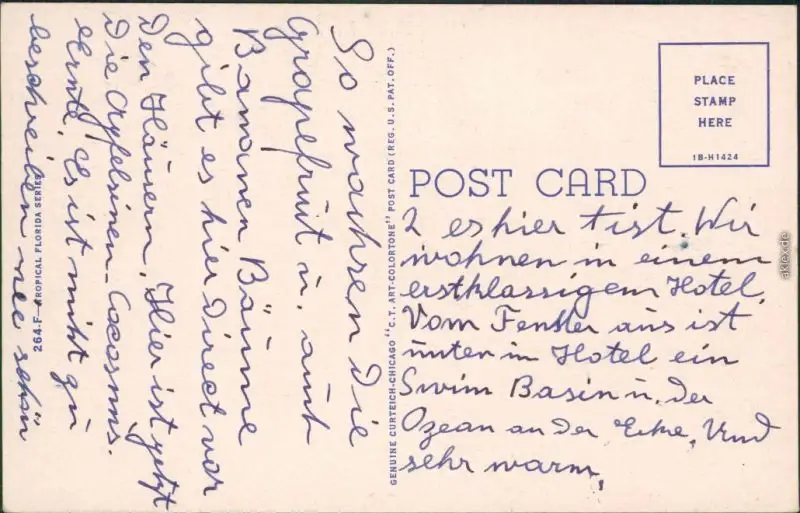 So wachsen die
Grapefruit u. auch
Bananen Bäume
gibt es hier direct vor
den Häusern. Hier ist jetzt
die Apfelsinen-Cocosnus.
Ernte. Es ist nicht zu
beschreiben wie schön
264-F—TROPICAL FLORIDA SERIES
GENUINE CURTEICH-CHICAGO "C.T. ART-COLORTONE" POST CARD (REG. U.S. PAT. OFF.)
PLACE
STAMP
HERE
1B-H1424
POST CARD
2 es hier ist. Wir
wohnen in einem
erstklassigem Hotel.
Vom Fenster aus ist
unter im Hotel ein
Swim Basin u. der
Ozean an der Ecke. Und
sehr warm.
akpool.de